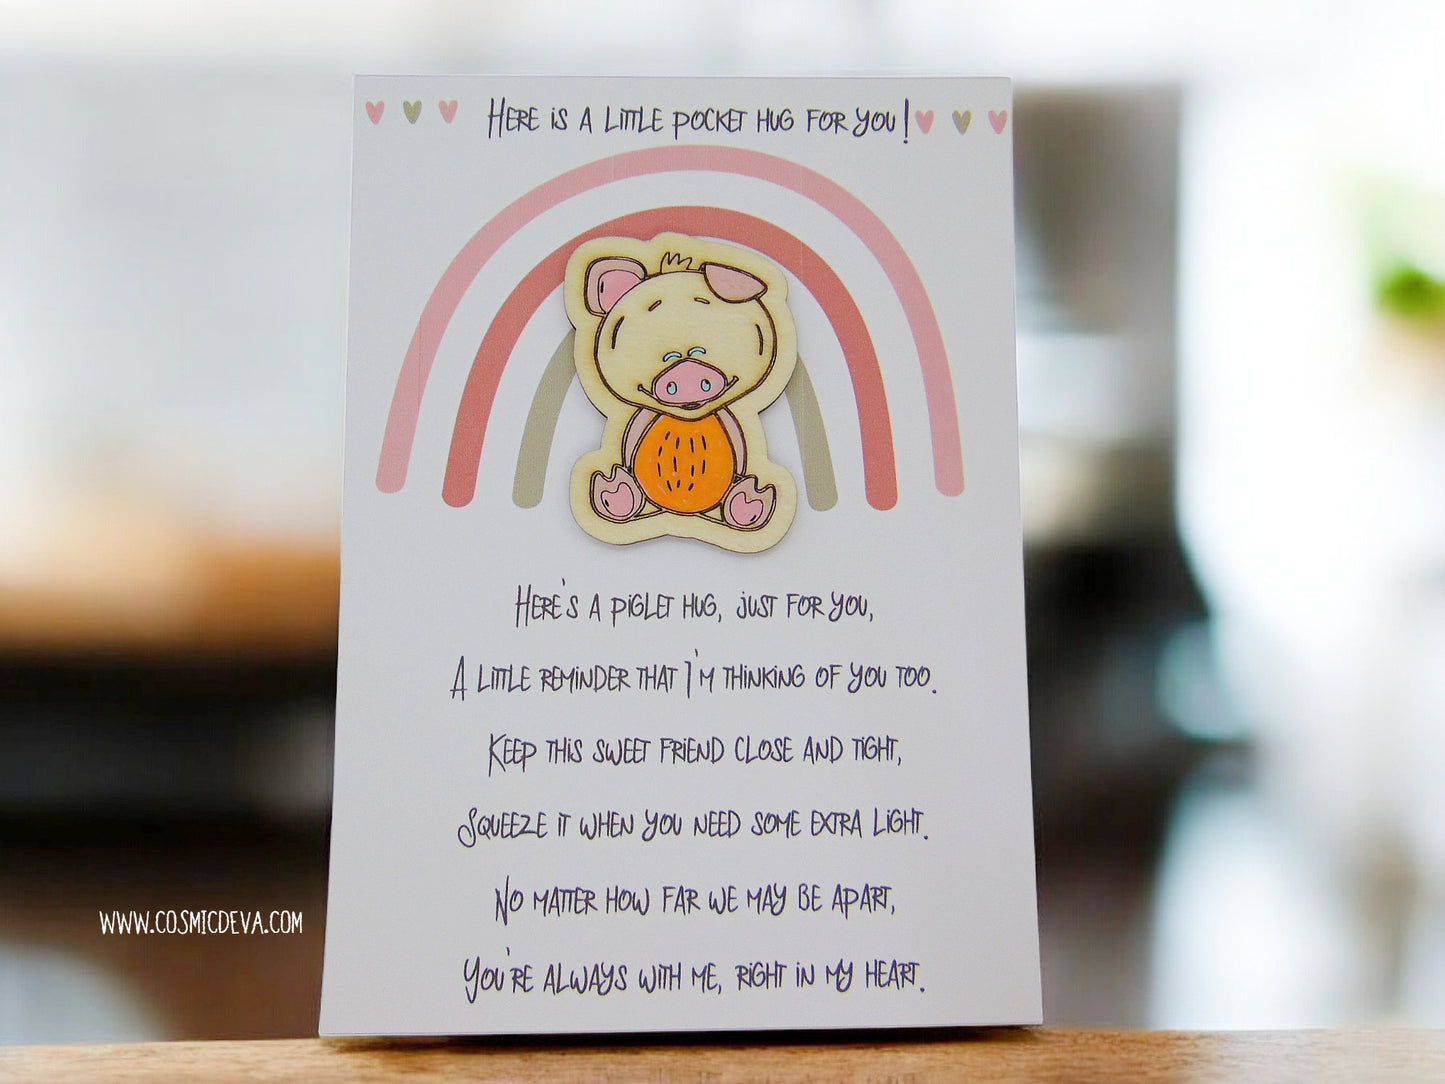 Here is a little pocket hug for you!
Here's a piglet hug, just for you,
A little reminder that I'm thinking of you too.
Keep this sweet friend close and tight,
Squeeze it when you need some extra light.
No matter how far we may be apart,
You're always with me, right in my heart.
www.cosmicdeva.com